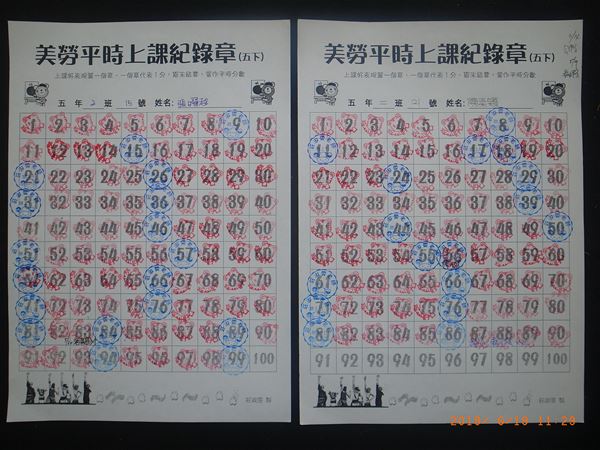 美勞平時上課紀錄章(五下)
上課好表現蓋一個章，一個章代表1分，期末結算，當作平時分數
五 年 2 班 15 號 姓名:
1 2 3 4 5 6 7 8 9 10
11 12 13 14 15 16 17 18 19 20
21 22 23 24 25 26 27 28 29 30
31 32 33 34 35 36 37 38 39 40
41 42 43 44 45 46 47 48 49 50
51 52 53 54 55 56 57 58 59 60
61 62 63 64 65 66 67 68 69 70
71 72 73 74 75 76 77 78 79 80
81 82 83 84 85 86 87 88 89 90
91 92 93 94 95 96 97 98 99 100
美勞平時上課紀錄章(五下)
上課好表現蓋一個章，一個章代表1分，期末結算，當作平時分數
五 年 二 班 21 號 姓名:
1 2 3 4 5 6 7 8 9 10
11 12 13 14 15 16 17 18 19 20
21 22 23 24 25 26 27 28 29 30
31 32 33 34 35 36 37 38 39 40
41 42 43 44 45 46 47 48 49 50
51 52 53 54 55 56 57 58 59 60
61 62 63 64 65 66 67 68 69 70
71 72 73 74 75 76 77 78 79 80
81 82 83 84 85 86 87 88 89 90
91 92 93 94 95 96 97 98 99 100
2010/ 6/19 11:29